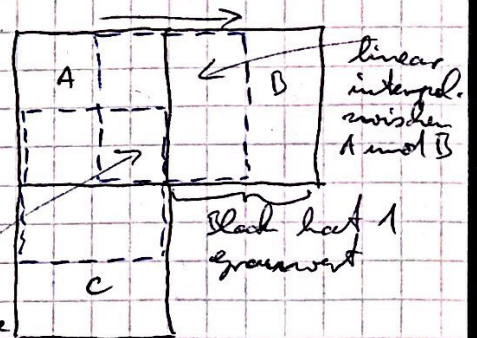 A
B
linear
interpol.
zwischen
A und B
Block hat 1
grauwert
C